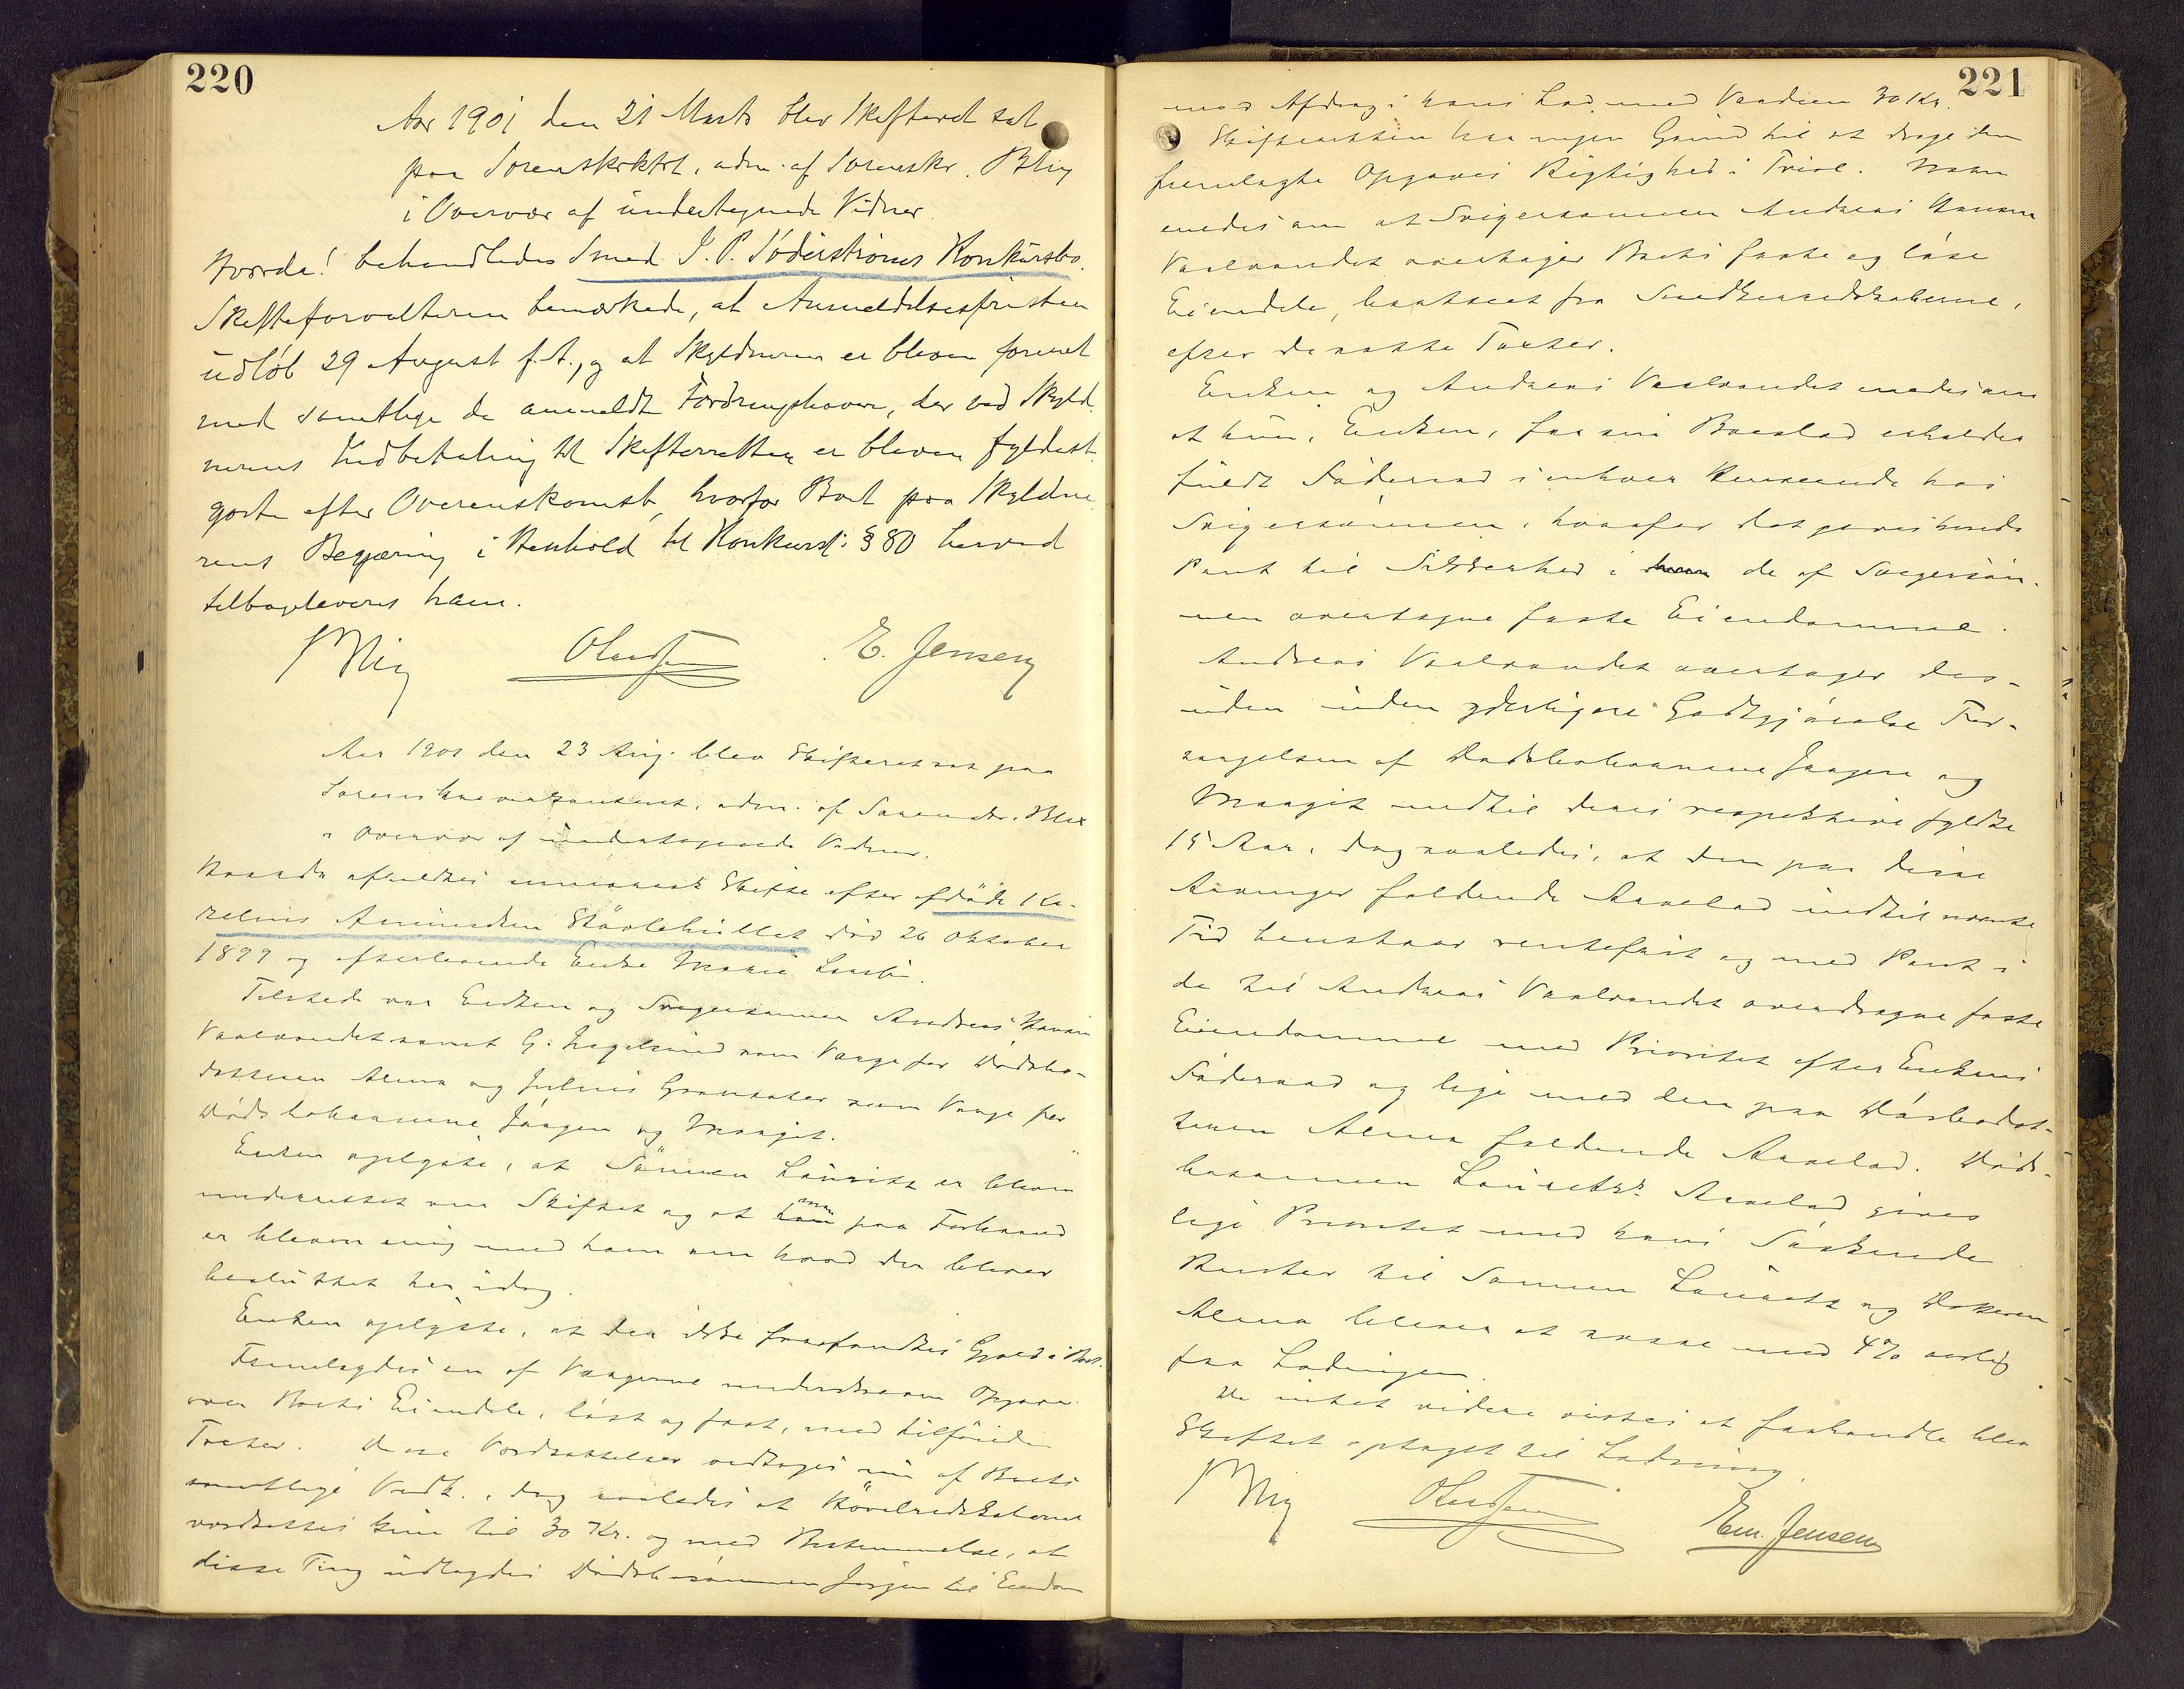 220
Aar 1901 den 21 Marts blev Skifteret sat
paa Sorenskrktrt, adm. af Sorenskr. Blix
i Overvær af undertegnede Vidner.
Hvorda! behandledes Smed J. P. Söderströms Konkursbo.
Skifteforvalteren bemærkede, at Anmeldelsesfristen
udløb 29 August f. A., og at Skyldneren er bleven forenet
med samtlige de anmeldte Fordringshavere, der ved Skyld-
nerens Indbetaling til Skifteretten er bleven fyldest-
gjorte efter Overenskomst, hvorfor Boet paa Skyldne-
rens Begjæring i Henhold til Konkursl. § 80 herved
tilbageleveres ham.
Blix Olsen E. Jensen
Aar 1901 den 23 Aug. blev Skifteret sat paa
Sorenskriverkontoret, adm. af Sorenskr. Blix
i Overvær af undertegnede Vidner.
Hvorda afholdtes Skifte efter afdøde Ka-
relius Amundsen Støvlehullet død 26 Oktober
1899 og efterlevende Enke Marie Lovise.
Tilstede var Enken og Svigersønnen Andreas Hansen
Vaalvandet samt G. Hagelund som Værge for Dødsbo-
datteren Alma og Julius Gransæter som Værge for
Dødsbobarnene Jørgen og Margit.
Enken oplyste, at Sønnen Lauritz er bleven
underrettet om Skiftet og at man paa Forhaand
er bleven enig med ham om hvad der bliver
besluttet her idag.
Enken oplyste, at der ikke forefandtes Gjæld i Boet.
Fremlagdes en af Værgerne underskreven Opgave
over Boets Eiendele, løst og fast, med tilføiede
Taxter. Disse Værdsættelser vedtages nu af Boets
samtlige Vedk., dog saaledes at
værdsættes kun til 30 Kr. og med Bestemmelse, at
disse Ting udlagdes Dødsbosønnen Jørgen til Eiendom
221
mod Afdrag i hans Lod med Værdien 30 Kr.
Skifteretten har ingen Grund til at drage den
fremlagte Opgaves Rigtighed i Tvivl. Man
enedes om at Svigersønnen Andreas Hansen
Vaalvandet overtager Boets faste og løse
Eiendele, bortseet fra Smedkeredskaberne,
efter de satte Taxter.
Enken og Andreas Vaalvandet enedes om
at hun, Enken, for sin Boeslod erholder
fuldt Føderaad i enhver Henseende hos
Svigersønnen, hvorfor det gives hende
Pant til Sikkerhed i de af Svigersøn-
nen overtagne faste Eiendomme.
Andreas Vaalvandet overtager des-
uden uden yderligere Godtgjørelse For-
sørgelsen af Dødsbobarnene Jørgen og
Margit indtil deres respektive fyldte
15 Aar, dog saaledes, at den paa disse
Arvinger faldende Arvelod indtil nævnte
Tid henstaar rentefrit og med Pant i
de til Andreas Vaalvandet overdragne faste
Eiendomme med Prioritet efter Enkens
Føderaad og lige med den paa Dødsbodat-
teren Alma faldende Arvelod. Døds-
bosønnen Lauritz's Arvelod gives
lige Prioritet med hans Søskende.
Renter til Sønnen Lauritz og Datteren
Alma bliver at svare med 4% aarlig
fra Lodningen.
Da intet videre vistes at forhandle blev
Skiftet optaget til Lodning.
Blix Olsen Em. Jensen